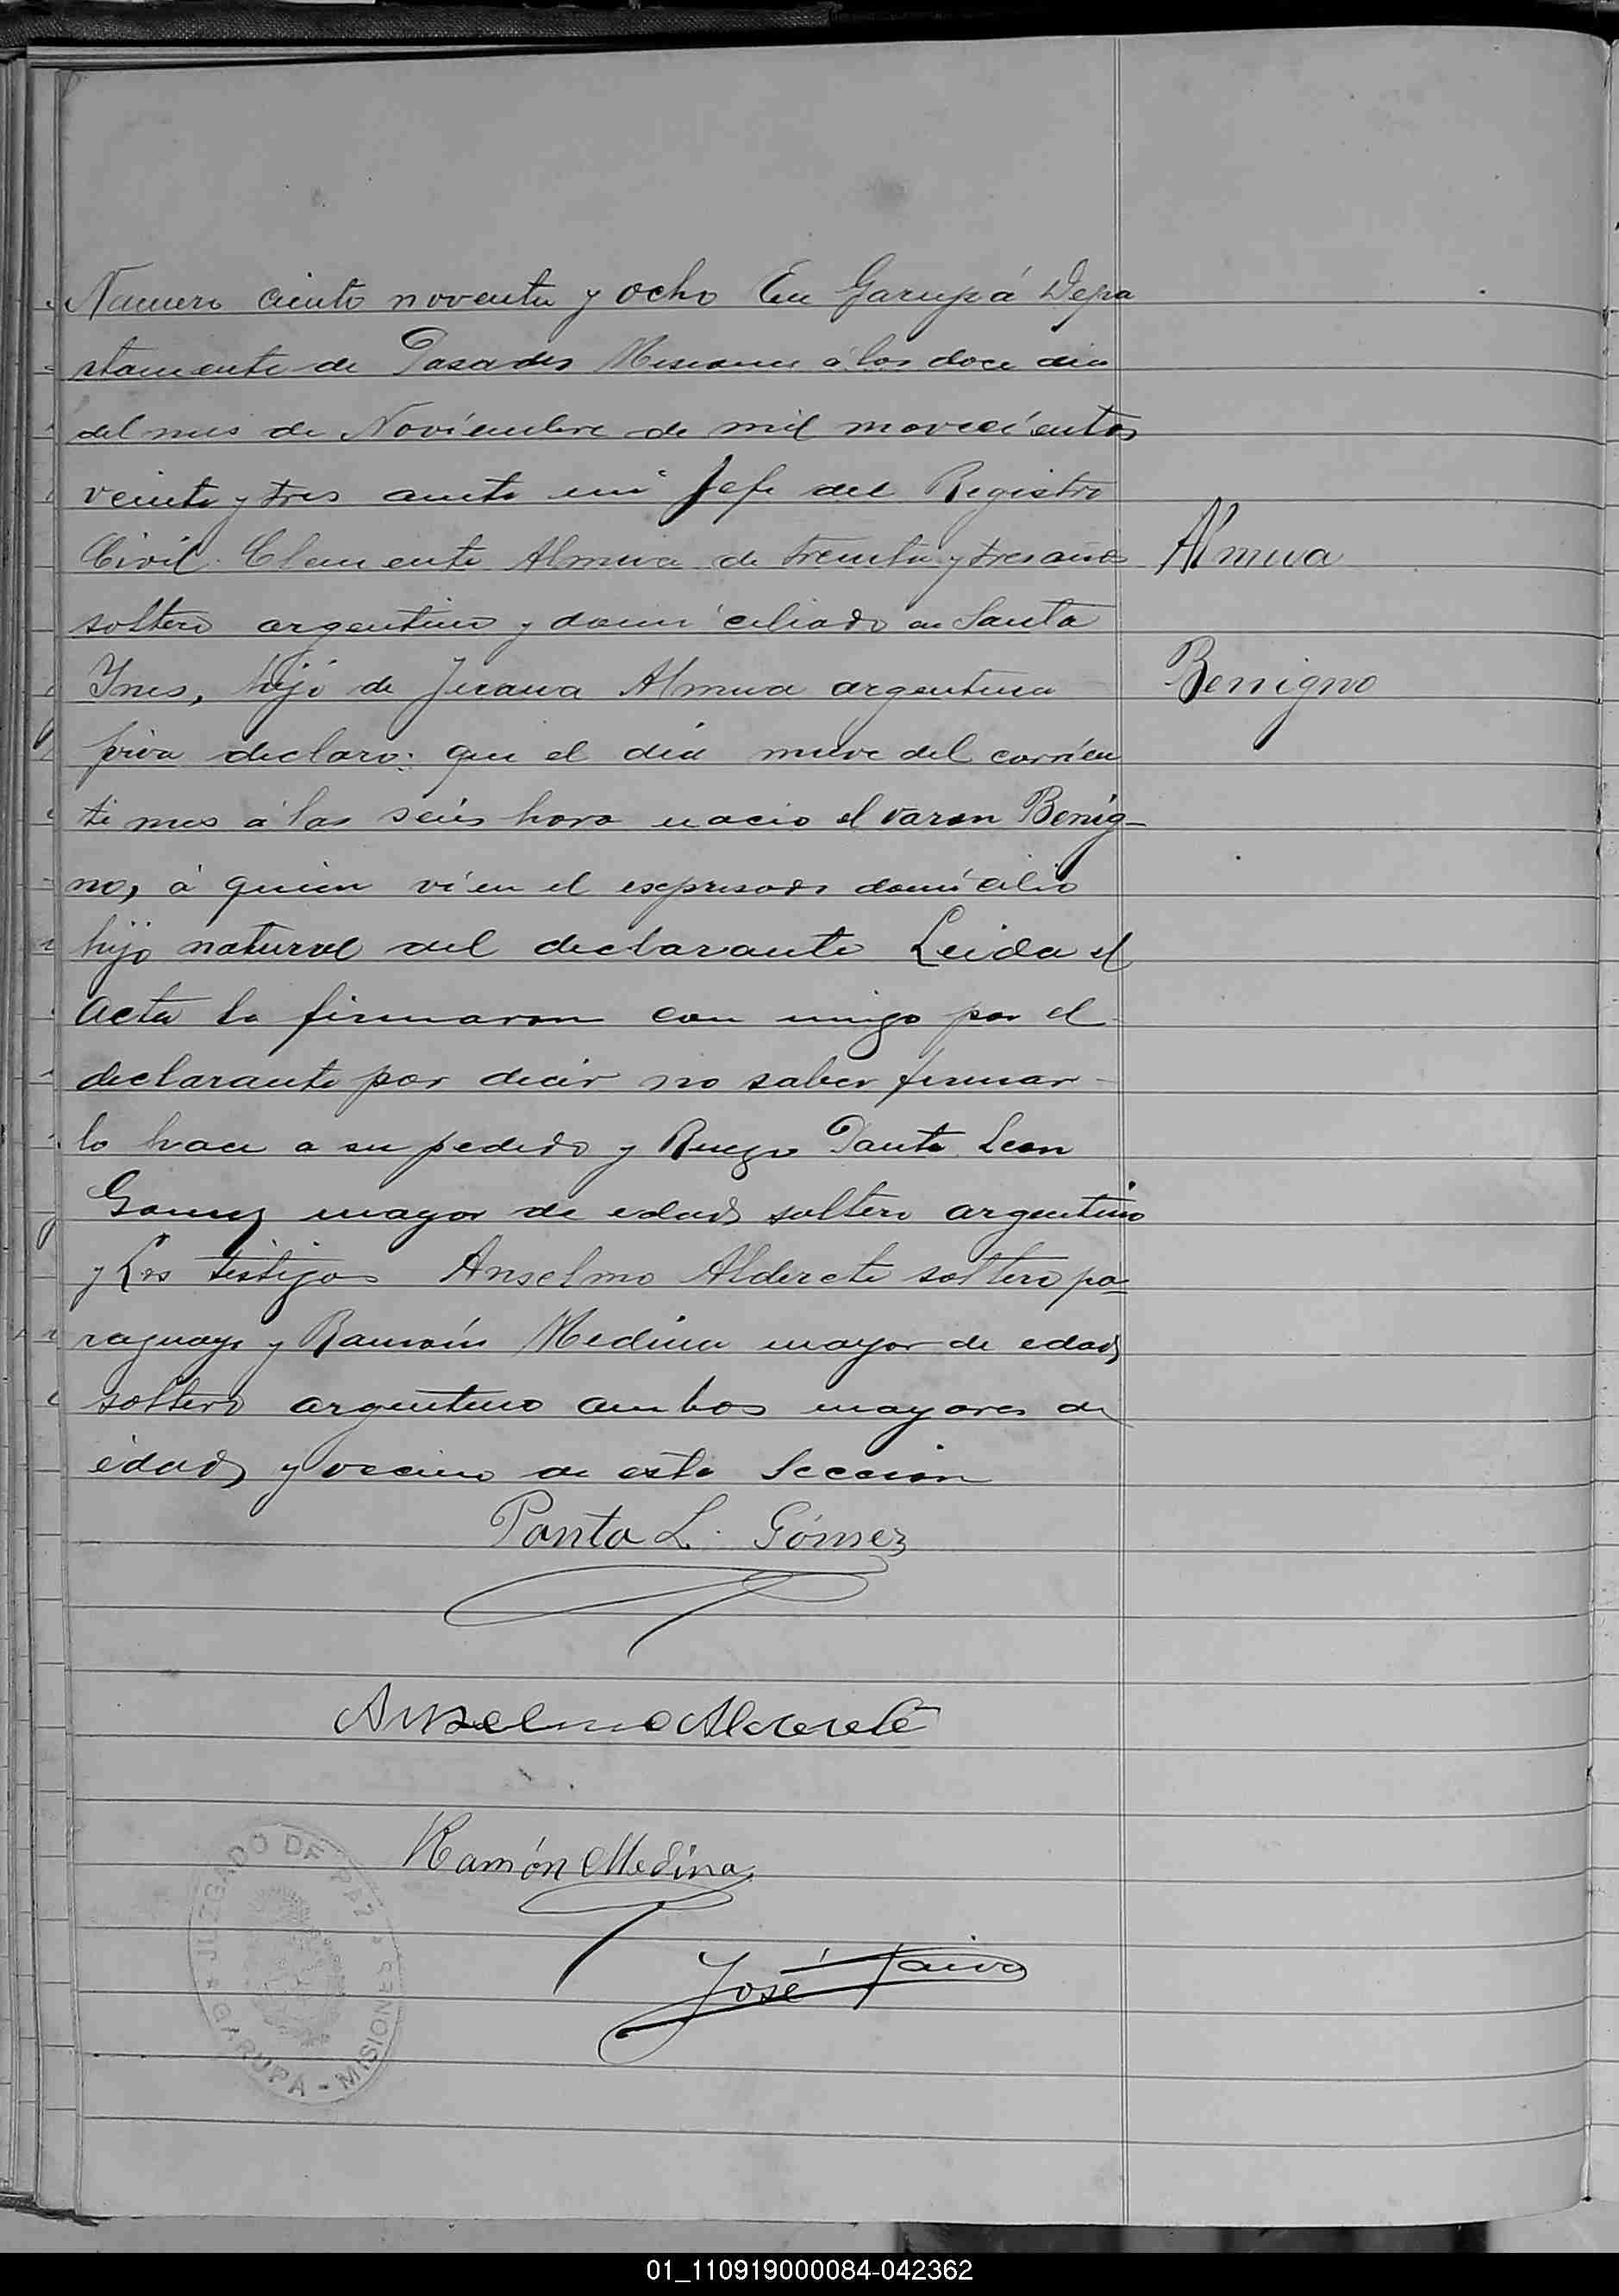 Numero ciento noventa y ocho En Garupá Depa
rtamento de Posadas Misiones á los doce dia
del mes de Noviembre de mil novecientos
veinte y tres ante mi Jefe del Registro
Civil. Clemente Almua de treinta y tres años
soltero argentino y domiciliado en Santa
Ines, hijo de Juana Almua argentina
declaro: que el dia nueve del corrien
te mes á las seis hora nacio el varon Benig-
no, á quien vi en el expresado domicilio
hijo natural del declarante Leida el
acta la firmaron con migo por el
declarante por decir no saber firmar
lo hace a su pedido y Ruego Panta Leon
Gomez mayor de edad soltero argentino
y Los testigos Anselmo Alderete soltero pa=
raguayo y Ramón Medina mayor de edad
soltero argentino ambos mayores de
edad y vecino de esta Seccion
Almua
Benigno
Panta L. Gómez
Anselmo Alderete
Ramón Medina
José Paiva
JUZGADO DE PAZ
GARUPA - MISIONES
01_110919000084-042362